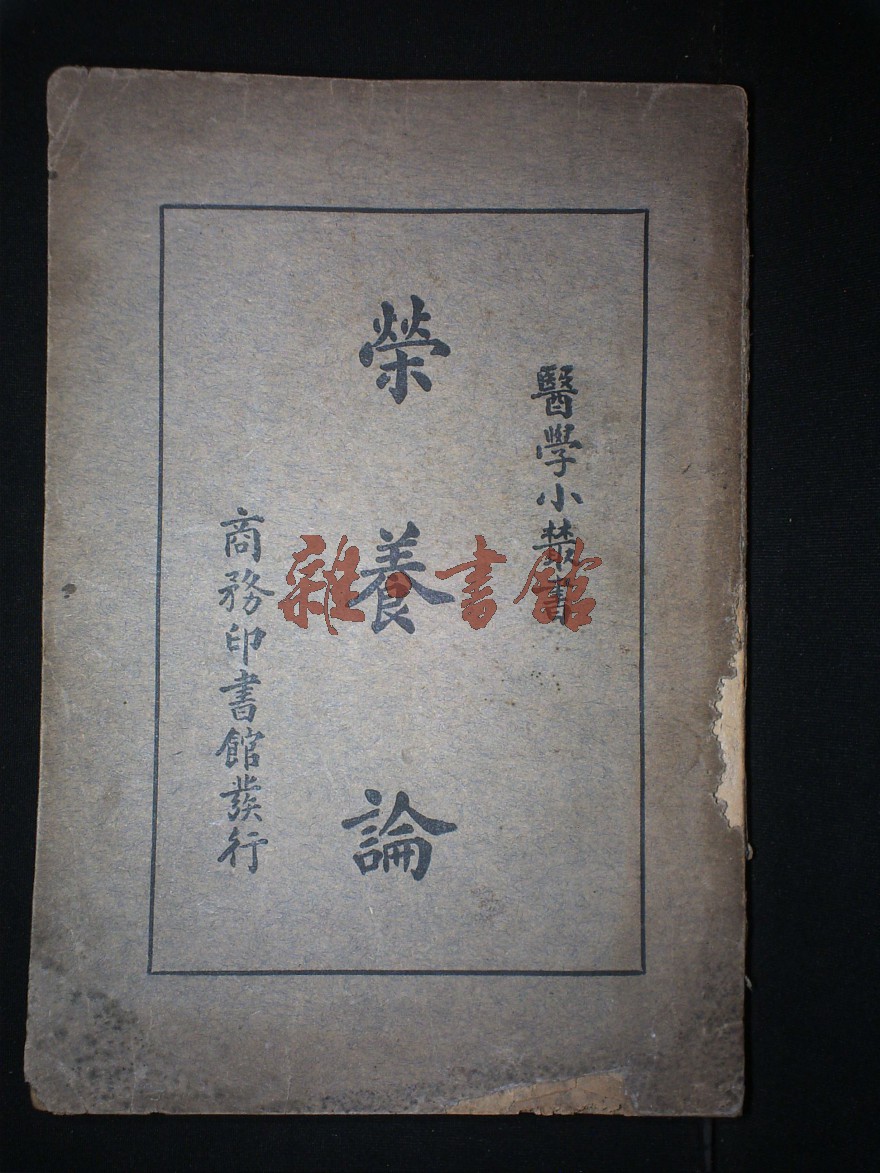 醫學小叢書
榮養論
商務印書館發行
雜·書館